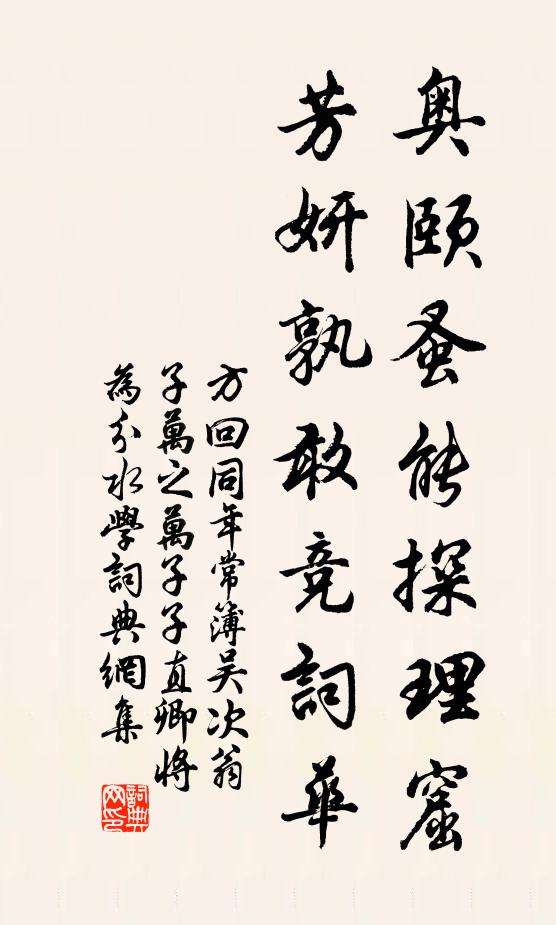 奥頤蚤能探理窟
芳妍孰敢竞詞華
方回同年常簿吴次翁
子萬之萬子子直卿將
為分水學詞典網集
詞典
网印